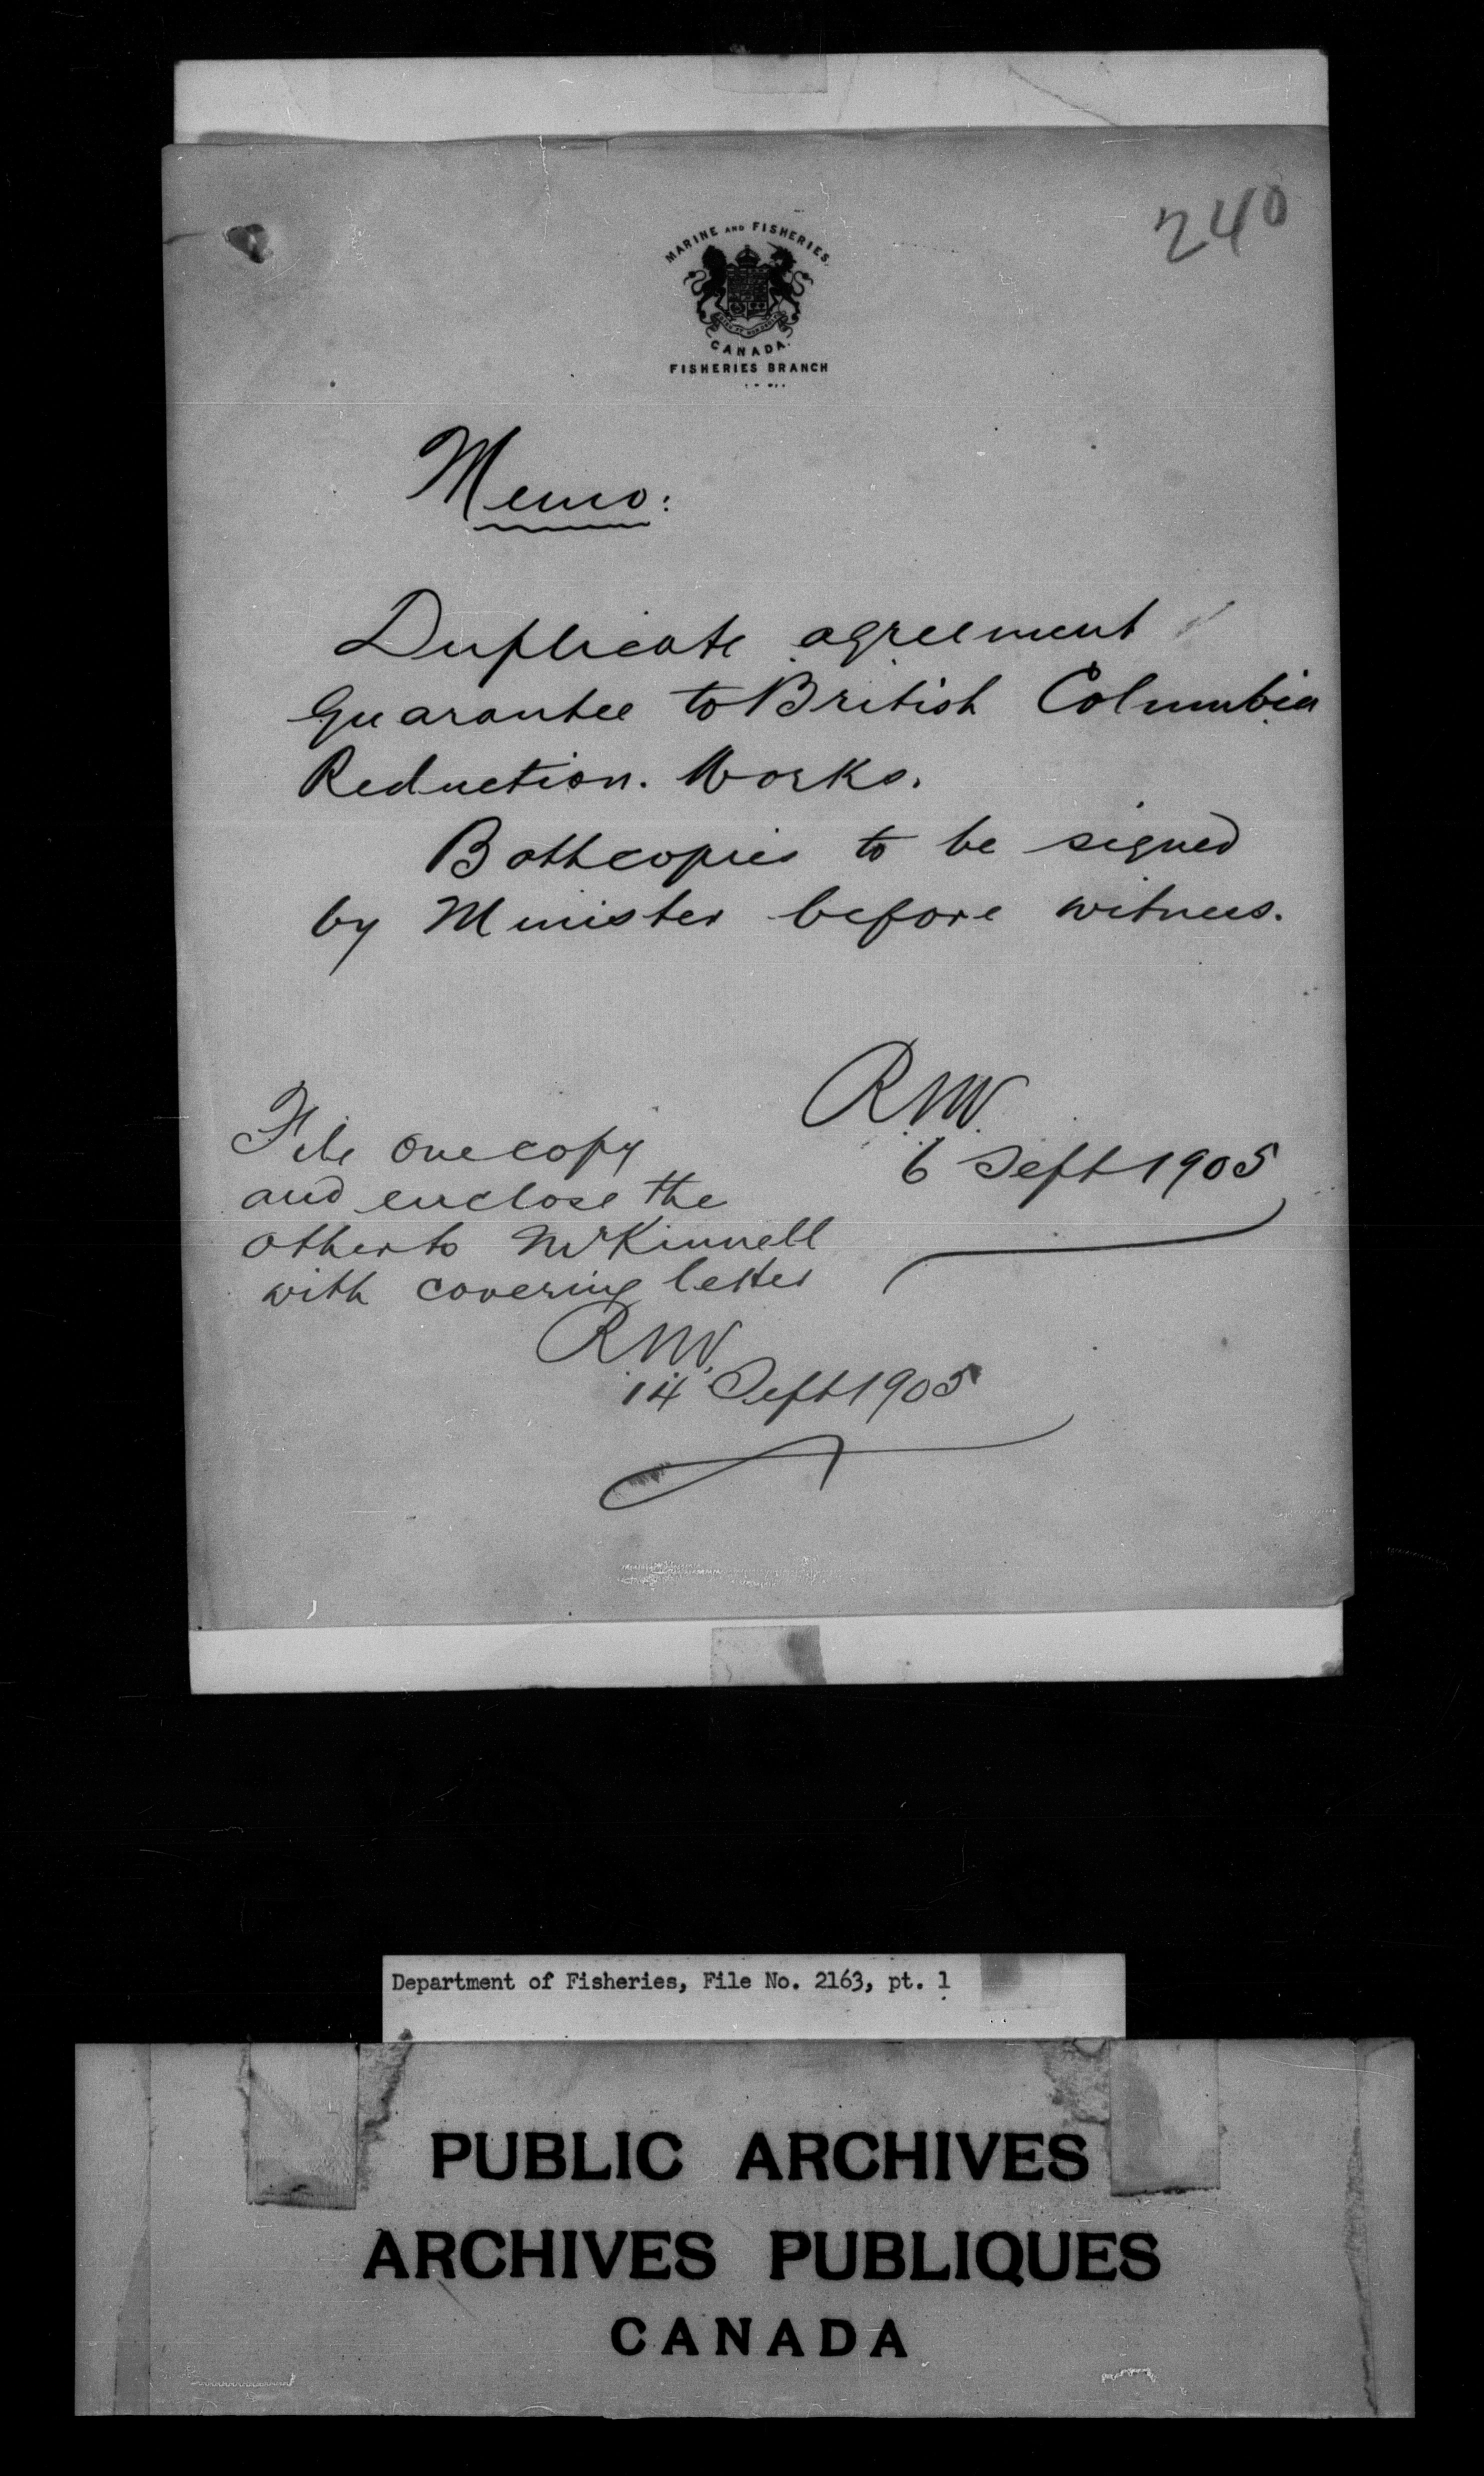 240
MARINE AND FISHERIES.
CANADA.
FISHERIES BRANCH
Memo:
Duplicate agreement
Guarantee to British Columbia
Reduction. Works.
Both copies to be signed
by Minister before witness.
RNV
6 Sept 1905
File one copy
and enclose the
other to McKinnell
with covering letter
RNV.
14 Sept 1905
Department of Fisheries, File No. 2163, pt. 1
PUBLIC ARCHIVES
ARCHIVES PUBLIQUES
CANADA